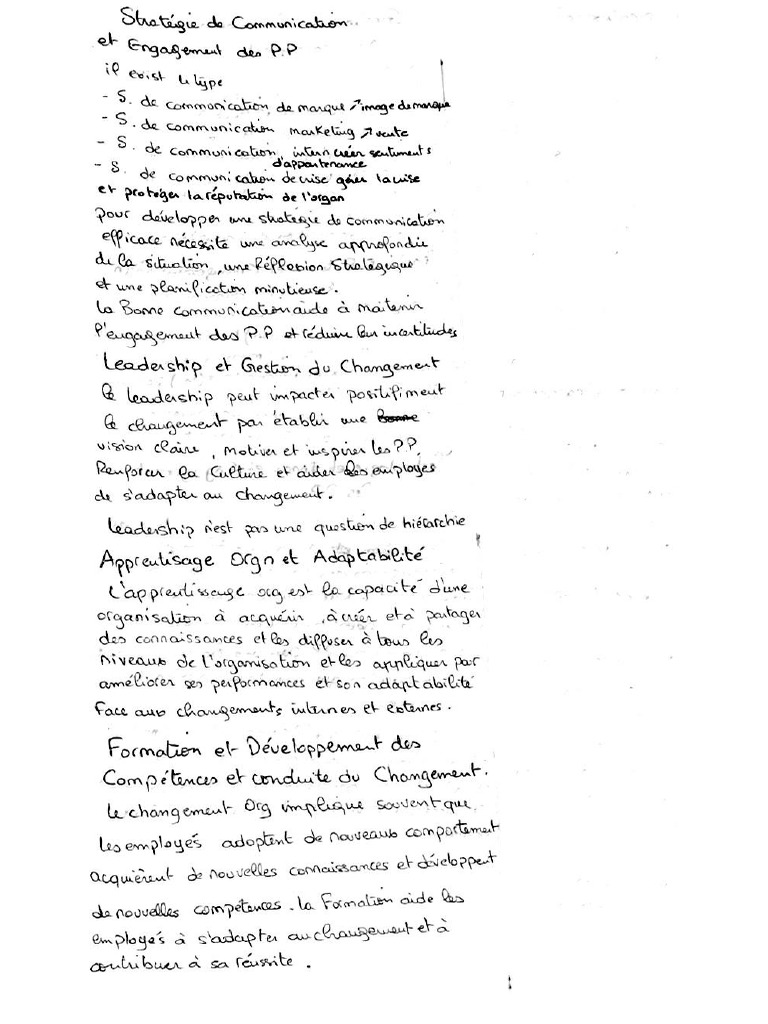 Stratégie de Communication
et Engagement des P.P
il exist 4 type
- S. de communication de marque ↗ image de marque
- S. de communication marketing ↗ vente
- S. de communication intern créer sentiments
d'appartenance
- S. de communication de crise gérer la crise
et protéger la réputation de l'organ
pour développer une stratégie de communication
efficace nécessite une analyse approfondie
de la situation, une Réflexion Stratégique
et une planification minutieuse.
la Bonne communication aide à maitenir
l'engagement des P.P et réduire leur incertitudes
Leadership et Gestion du Changement
le leadership peut impacter positifiment
le changement par établir une Bonne
vision claire, Motiver et inspirer les P.P.
Renforcer la Culture et aider les employés
de s'adapter au changement.
leadership n'est pas une question de hiérarchie
Apprentisage Orgn et Adaptabilité
L'apprentisseuge org est la capacité d'une
organisation à acquérir, à créer et à partager
des connaissances et les diffuser à tous les
niveaux de l'organisation et les appliquer par
améliorer ses performances et son adaptabilité
Face aux changements internes et externes.
Formation et Développement des
Compétences et conduite du Changement.
le changement Org implique souvent que
les employés adoptent de nouveaux comportement
acquièrent de nouvelles connaissances et développent
de nouvelles compétences. la Formation aide les
employés à s'adapter au changement et à
contribuer à sa réussite.